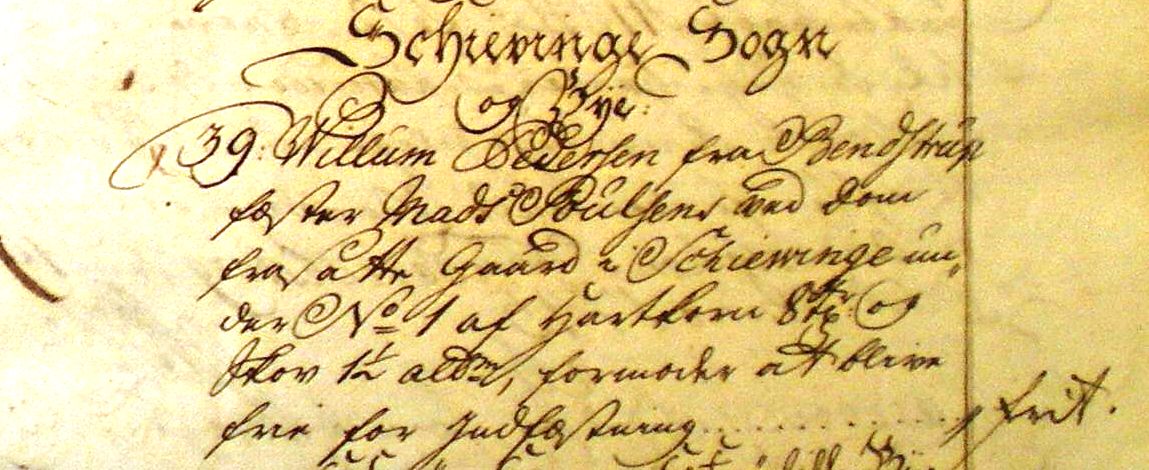 Schievinge Sogn
og Bÿe:
39: Willum Pedersen fra Bendstrup
fæster Mads Poulsens ved Dom
frasatte Gaard i Schievinge un„
der No 1 af Hartkorn 8 og
Skov 1½ alb:, formoder at blive
frie for Indfæstning . . . . . . . . . . . . frit.